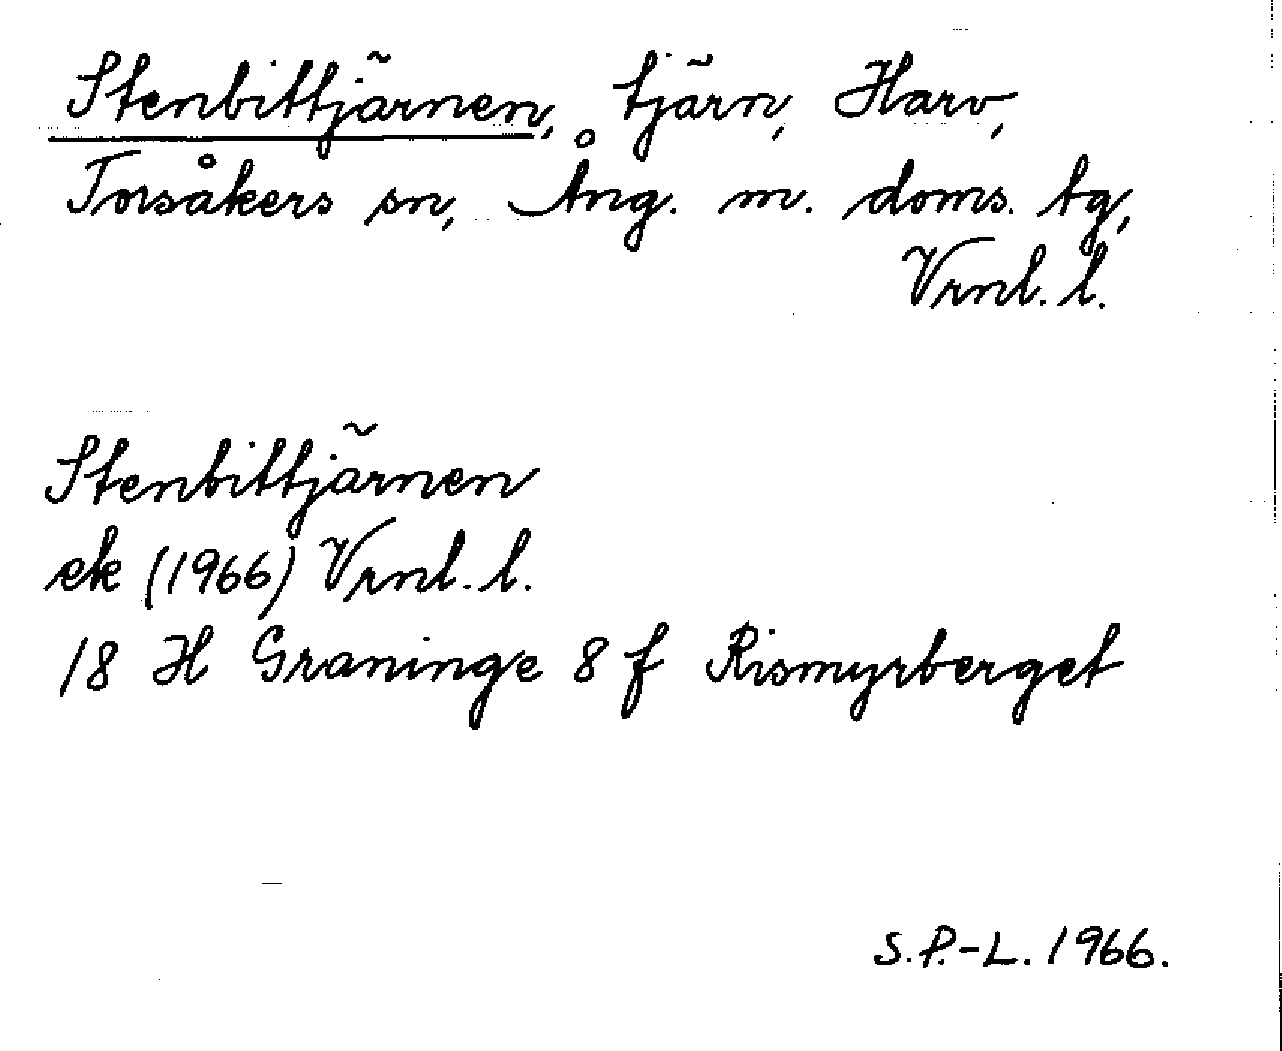 Stenbittjärnen, tjärn, Harv,
Torsåkers sn, Ång. m. doms. tg,
Vrnl. l.
Stenbittjärnen
ek (1966) Vrnl. l.
18 H Graninge 8 f Rismyrberget
S.P.-L. 1966.